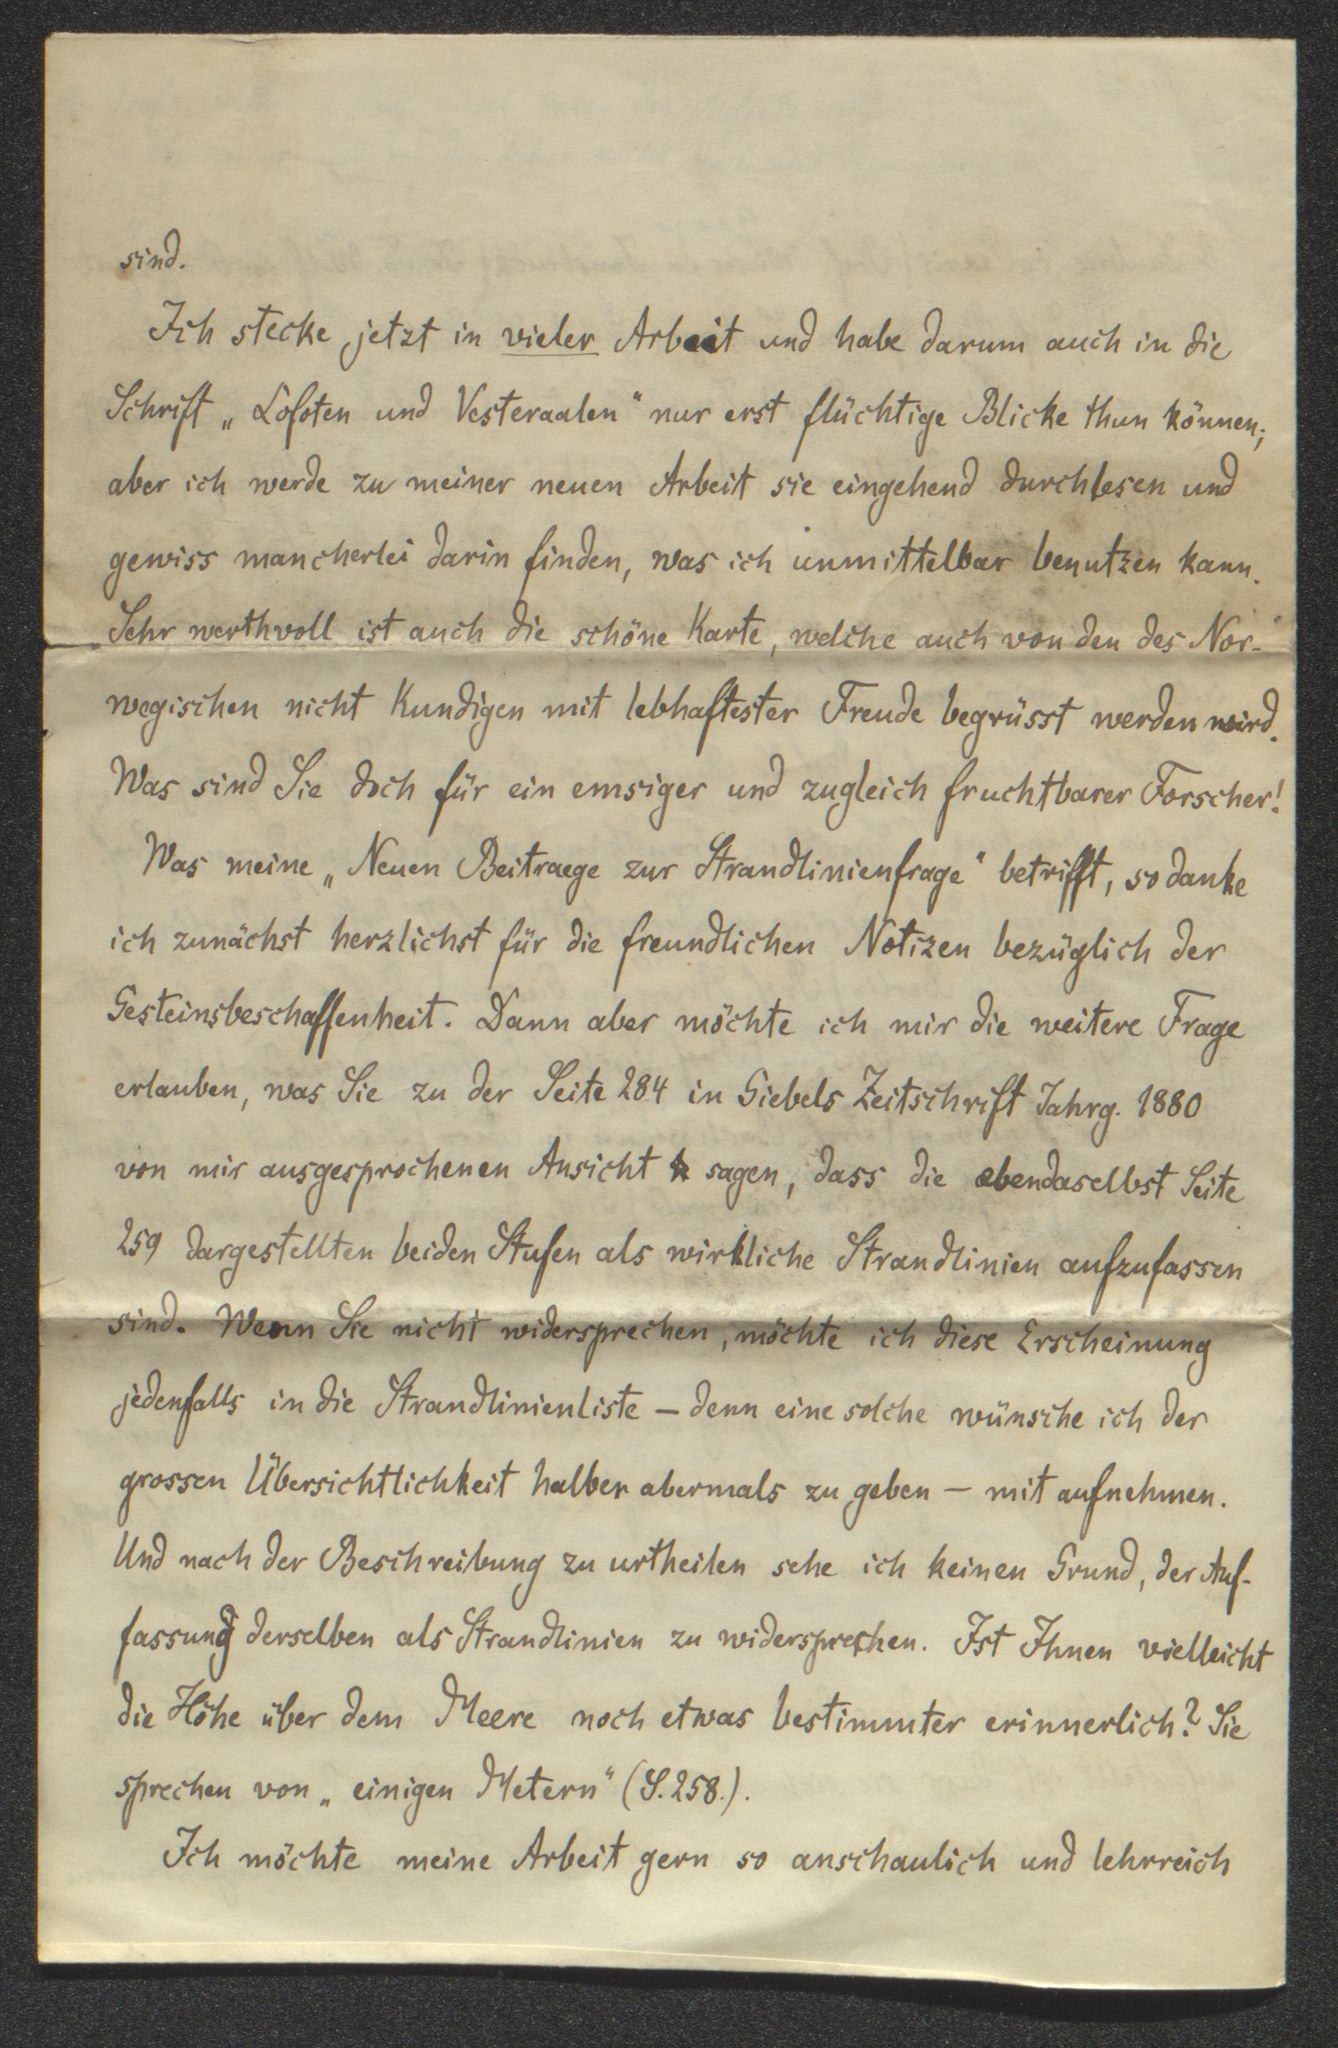 sind.
Ich stecke jetzt in vieler Arbeit und habe darum auch in die
Schrift „Lofoten und Vesteraalen“ nur erst flüchtige Blicke thun können;
aber ich werde zu meiner neuen Arbeit sie eingehend durchlesen und
gewiss mancherlei darin finden, was ich unmittelbar benutzen kann.
Sehr werthvoll ist auch die schöne Karte, welche auch von den des Nor-
wegischen nicht Kundigen mit lebhaftester Freude begrüsst werden wird.
Was sind Sie doch für ein emsiger und zugleich fruchtbarer Forscher!
Was meine „Neuen Beitraege zur Strandlinienfrage“ betrifft, so danke
ich zunächst herzlichst für die freundlichen Notizen bezüglich der
Gesteinsbeschaffenheit. Dann aber möchte ich mir die weitere Frage
erlauben, was Sie zu der Seite 284 in Giebels Zeitschrift Jahrg. 1880
von mir ausgesprochenen Ansicht sagen, dass die ebendaselbst Seite
259 dargestellten beiden Stufen als wirkliche Strandlinien aufzufassen
sind. Wenn Sie nicht widersprechen, möchte ich diese Erscheinung
jedenfalls in die Strandlinienliste – denn eine solche wünsche ich der
grossen Übersichtlichkeit halber abermals zu geben – mit aufnehmen.
Und nach der Beschreibung zu urtheilen sehe ich keinen Grund, der Auf-
fassung derselben als Strandlinien zu widersprechen. Ist Ihnen vielleicht
die Höhe über dem Meere noch etwas bestimmter erinnerlich? Sie
sprechen von „einigen Metern“ (S. 258.).
Ich möchte meine Arbeit gern so anschaulich und lehrreich